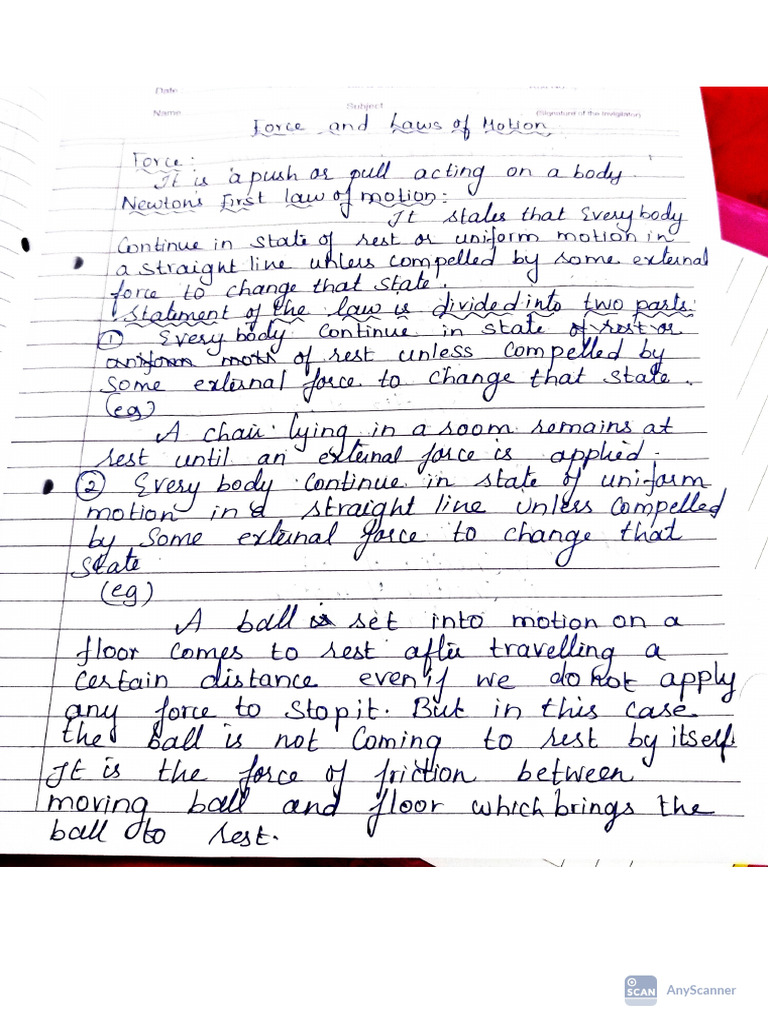 Date
Name
Subject
(Signature of the Invigilator)
Force and Laws of Motion
Force:
It is a push or pull acting on a body.
Newton's First law of motion:
It states that Every body
Continue in state of rest or uniform motion in
a straight line unless compelled by some external
force to change that state.
Statement of the law is divided into two parts:
① Every body continue in state of rest or
uniform moti of rest unless compelled by
some external force to change that state.
(eg)
A chair lying in a room remains at
rest until an external force is applied.
② Every body continue in state of uniform
motion in a straight line unless compelled
by some external force to change that
state
(eg)
A ball is set into motion on a
floor comes to rest after travelling a
certain distance even if we do not apply
any force to stop it. But in this case
the ball is not coming to rest by itself.
It is the force of friction between
moving ball and floor which brings the
ball to rest.
SCAN AnyScanner